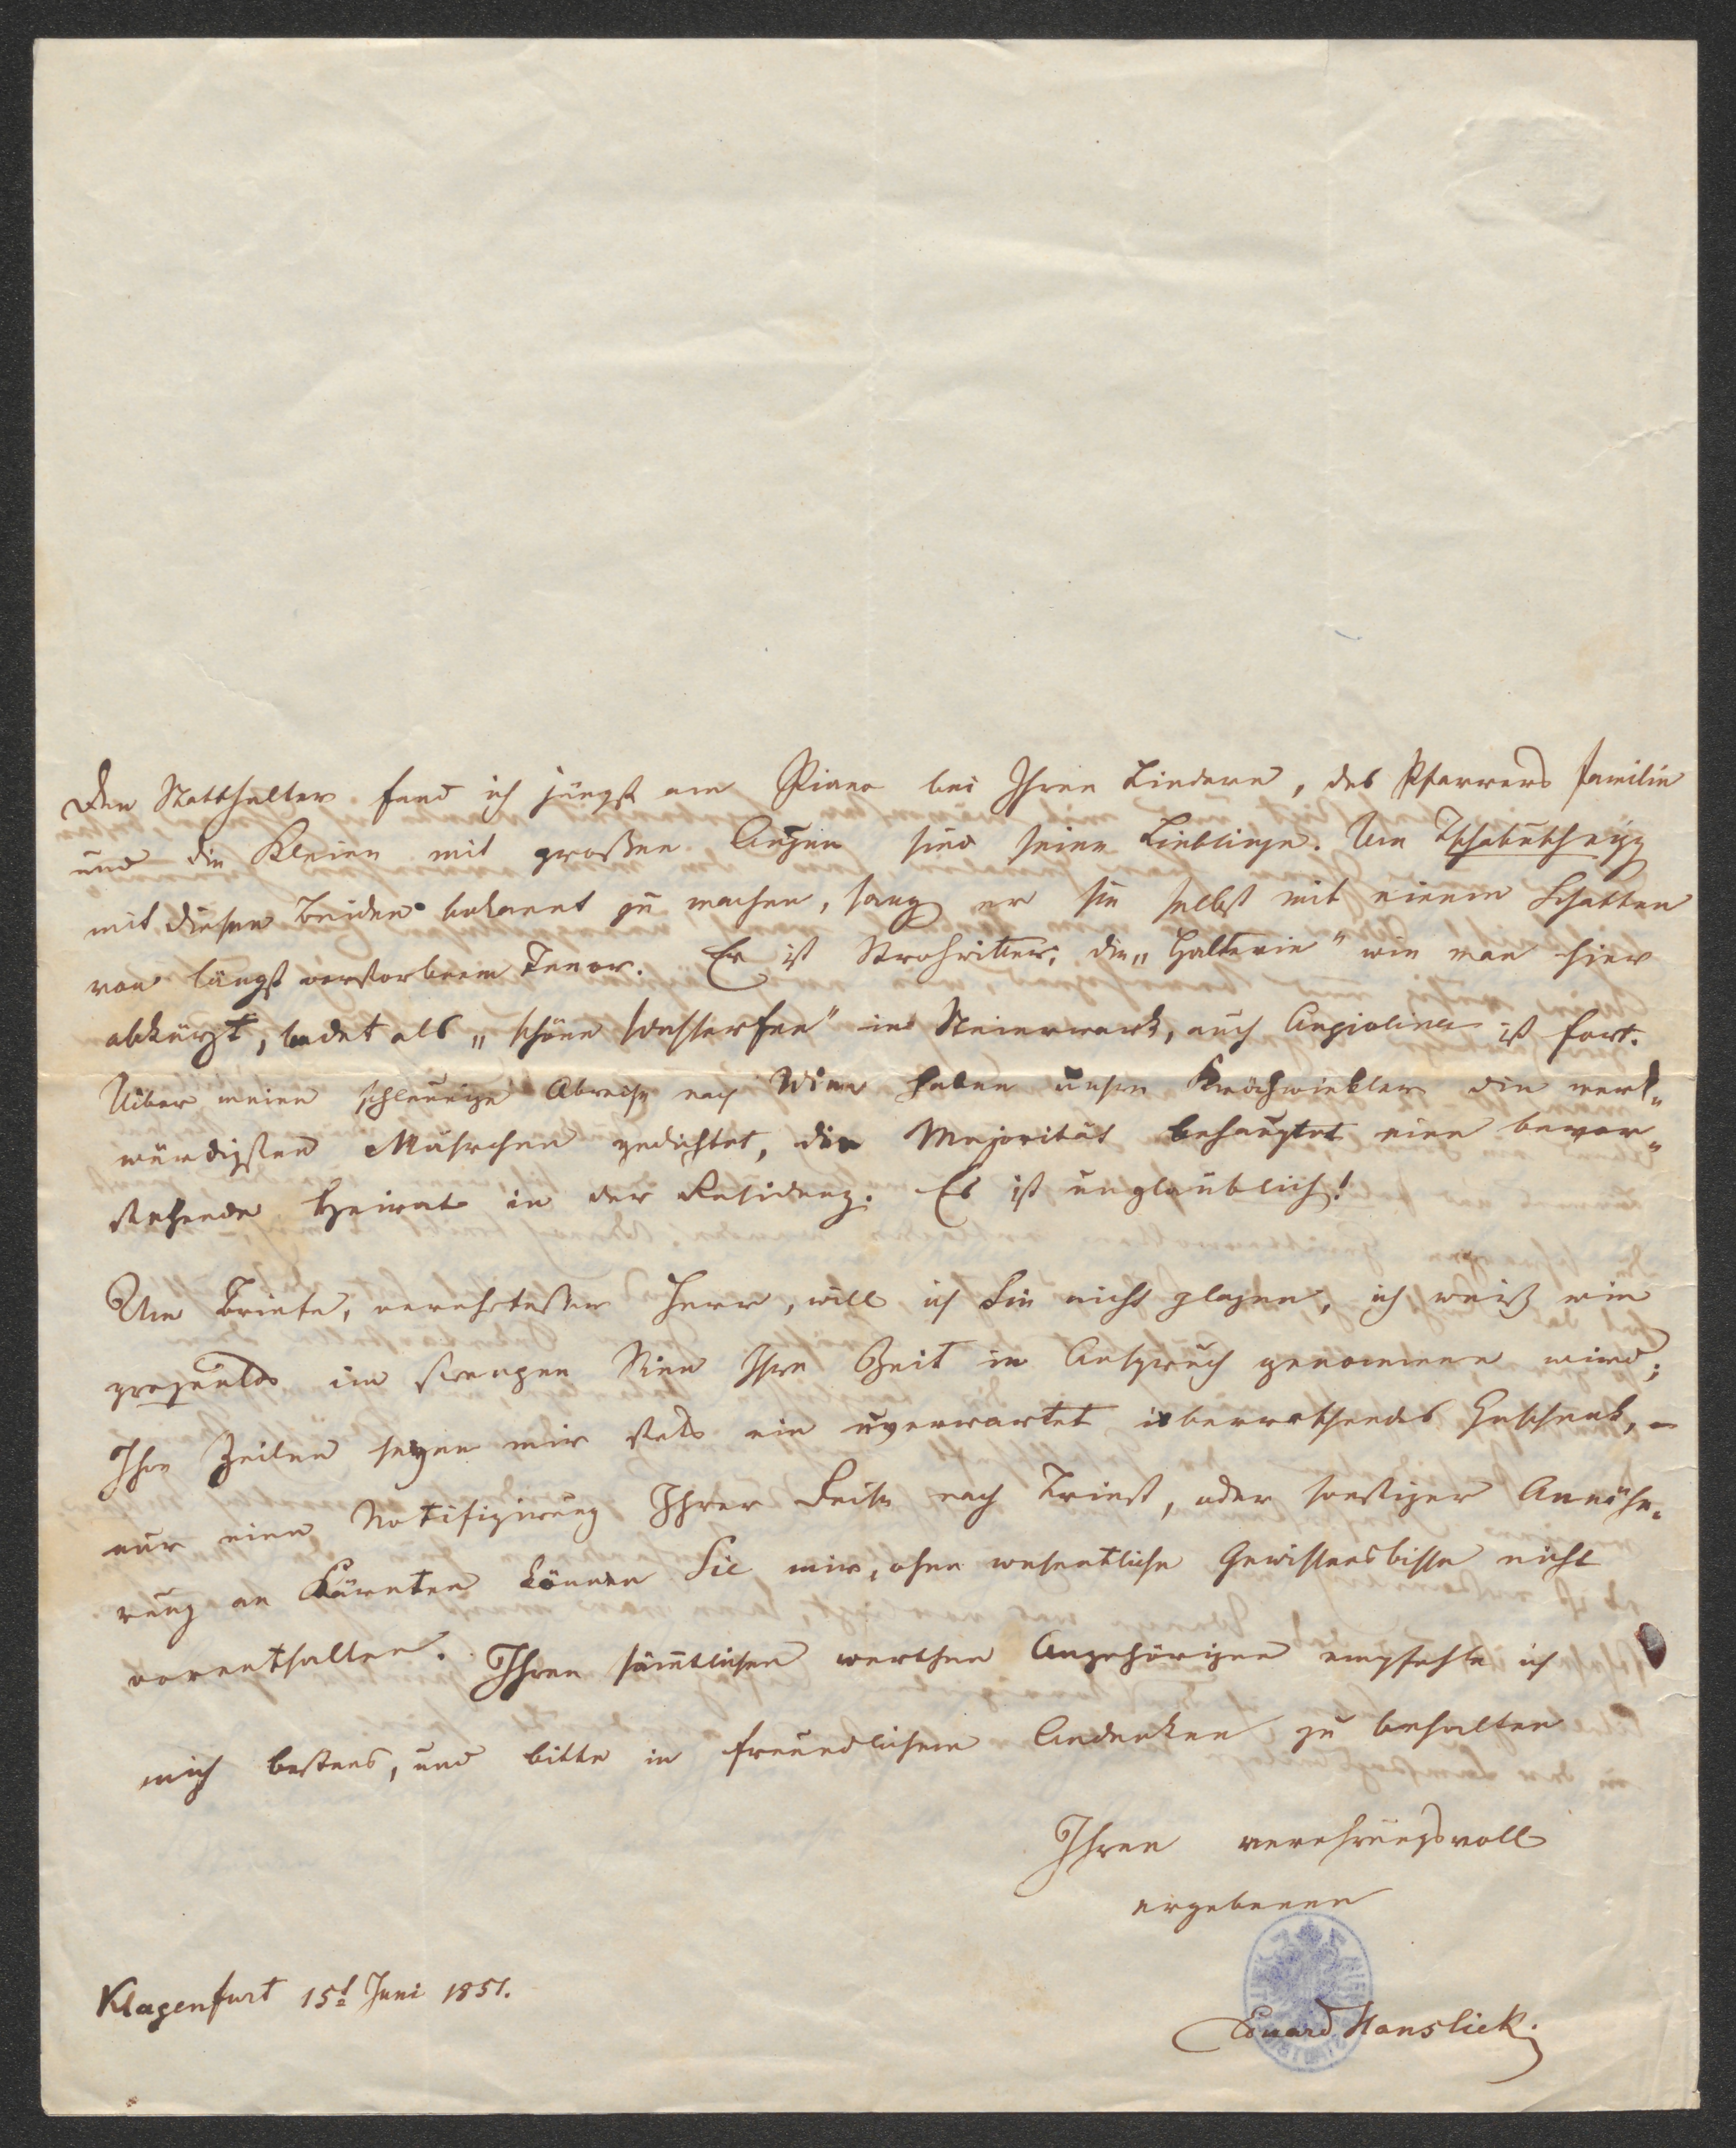 Den Statthalter fand ich jüngst am Piano bei Ihren Liedern, des Pfarrers Familie
und die Kleine mit großen Augen sind seine Lieblinge. Um Tschabuschnigg
mit diesen Beiden bekannt zu machen, sang er sie selbst mit einem Schatten
von längst verstorbenem Tenor. Er ist Strohwitwer, die „Halterin" wie man hier
abkürzt, badet als „schöne Wasserfee" in Steiermark, auch Angiolina ist fort.
Über meine schleunige Abreise nach Wien haben unsere Krähwinkler die merk„
würdigsten Mährchen gedichtet, die Majorität behauptet eine bevor„
stehende Heirat in der Residenz. Es ist unglaublich!
Um Briefe, verehrtester Herr, will ich Sie nicht plagen, ich weiß wie
im strengen Sinn Ihre Zeit in Anspruch genommen wird;
Ihre Zeilen seyen mir stets ein unerwartet überraschendes Geschenk, –
nur eine Notifizirung Ihrer Reise nach Triest, oder sonstiger Annähe„
rung an Kärnten können Sie mir, ohne wesentliche Gewissensbisse nicht
vorenthalten. Ihren sämtlichen werthen Angehörigen empfehle ich
mich bestens, und bitte in freundlichem Andenken zu behalten
Ihren verehrungsvoll
ergebenen
Klagenfurt 15t Juni 1851.
Eduard Hanslick.